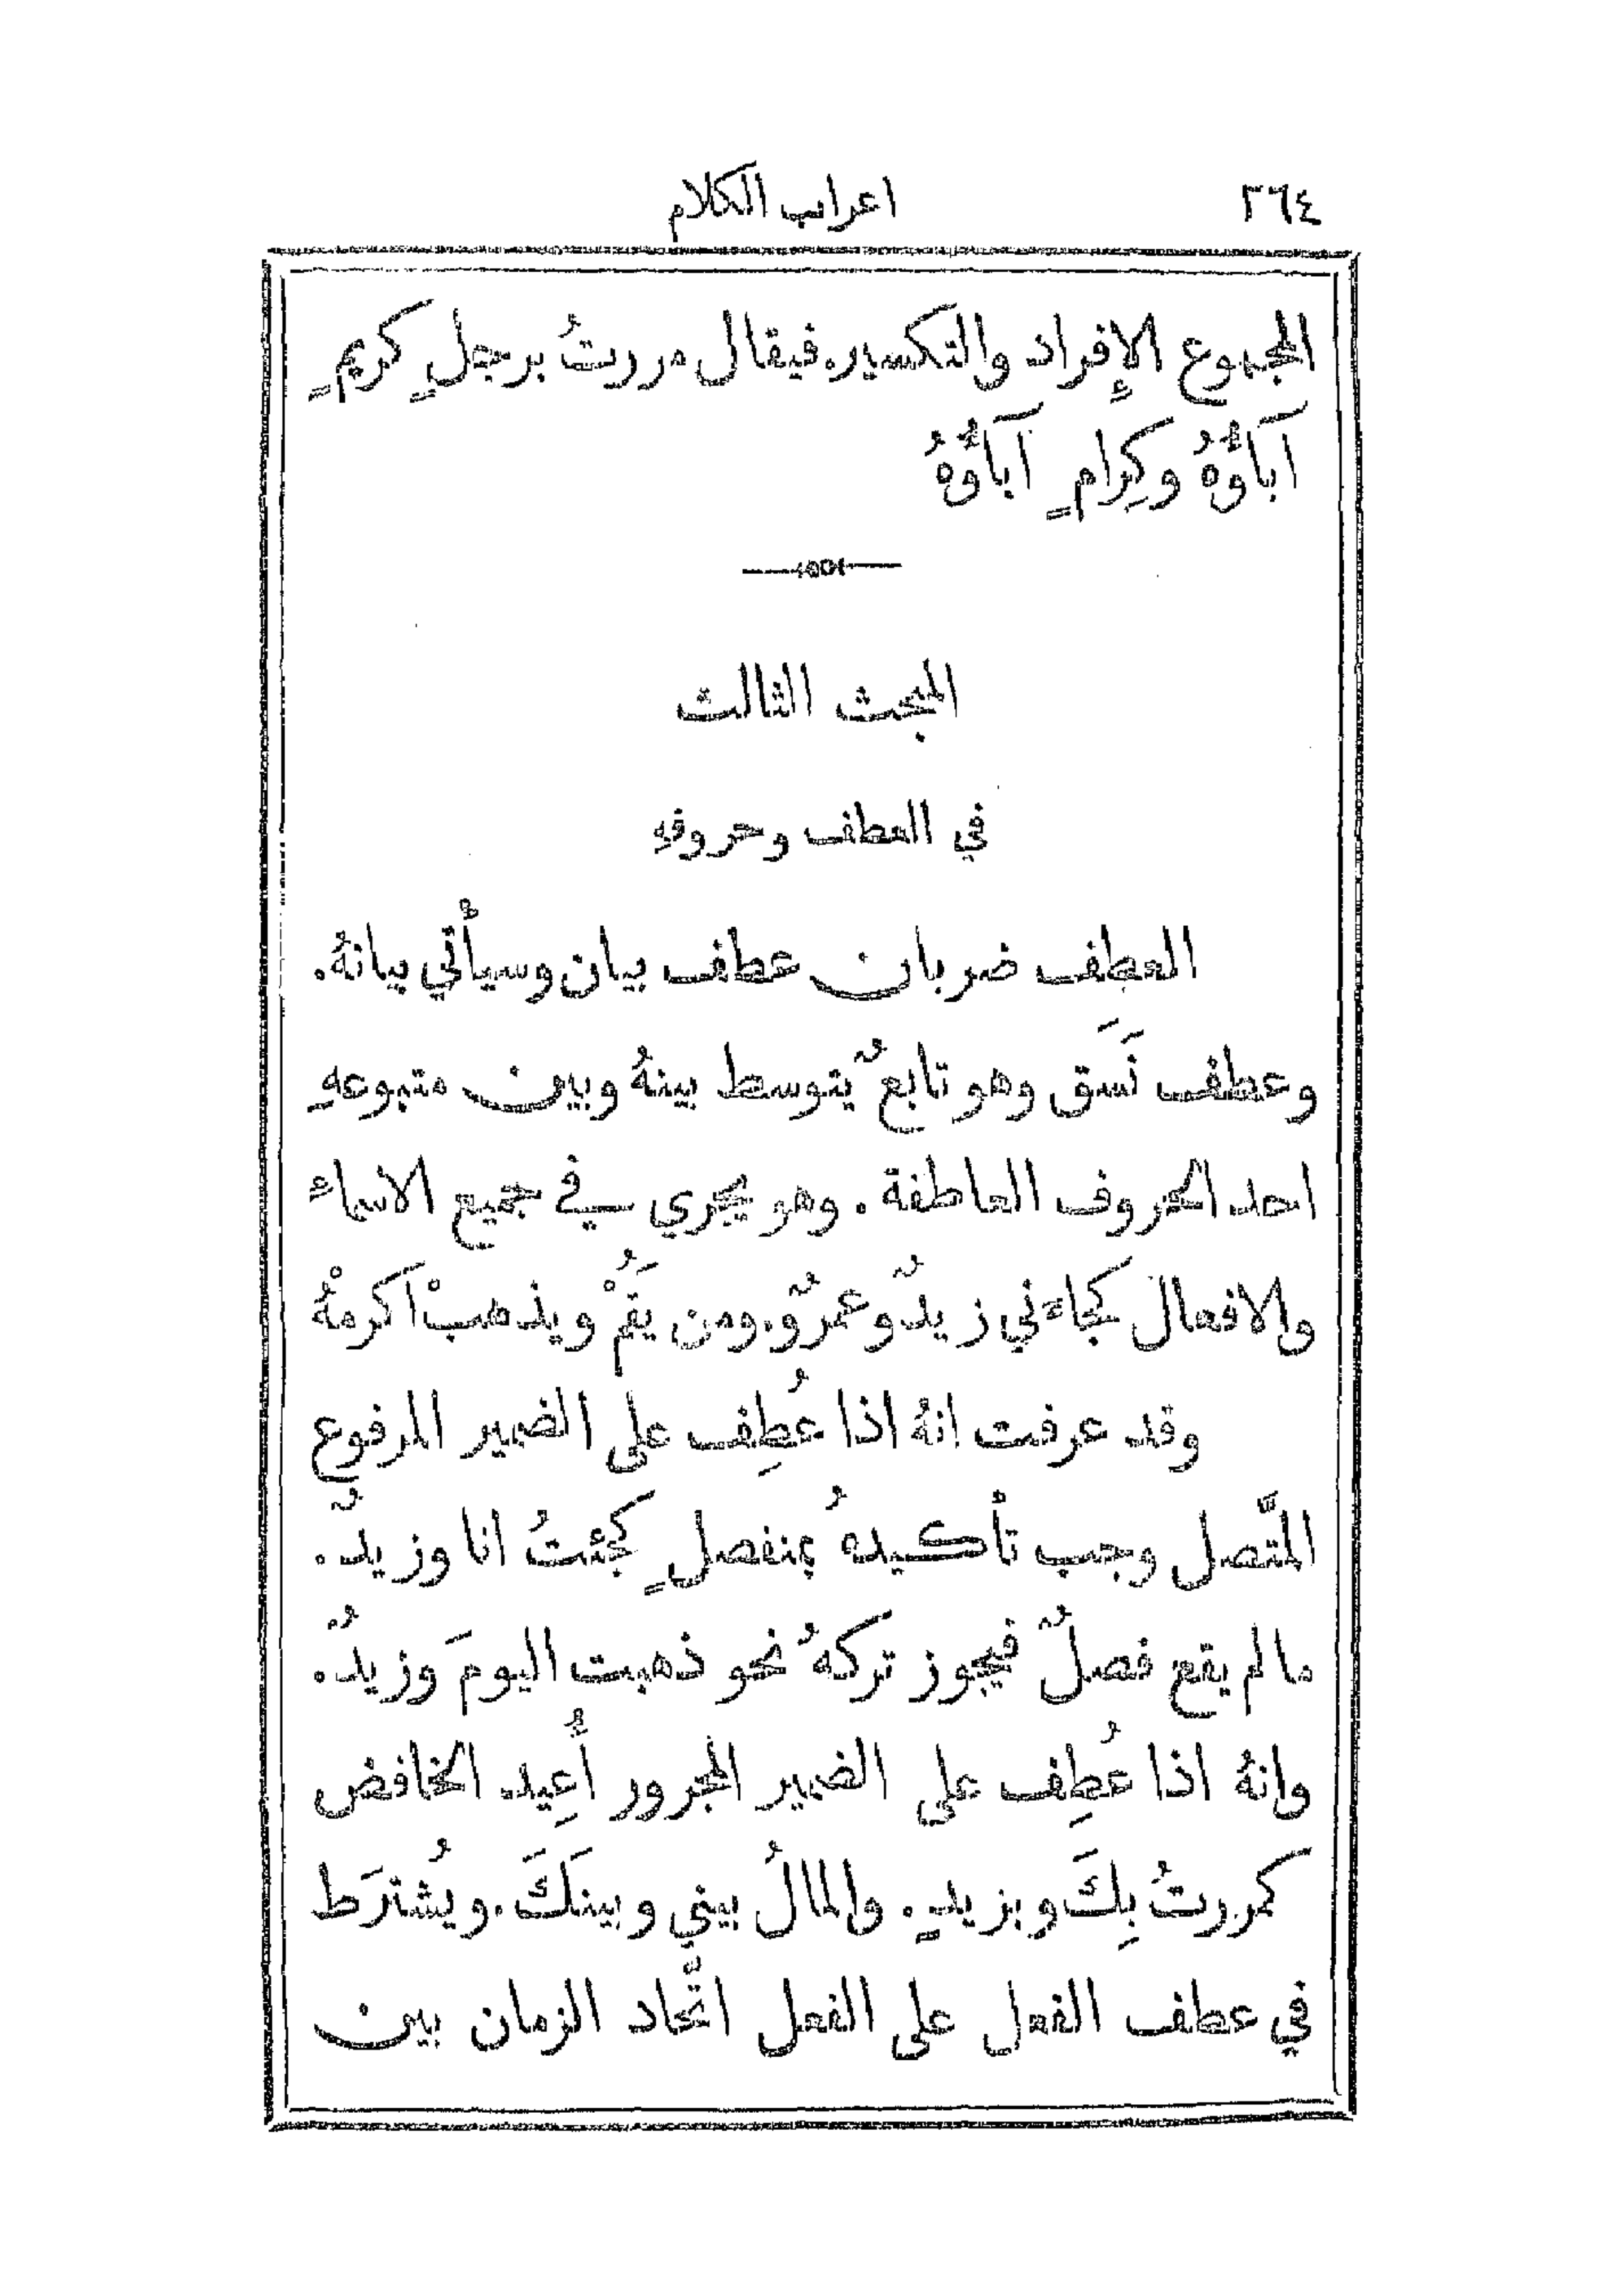 ٢٦٤ اعراب الكلام
المجموع الإفراد والتكسير. فيقال مررتُ برجلٍ كريمٍ
آبَاؤُهُ وكِرامٍ آبَاؤُهُ
المبحث الثالث
في العطف وحروفهِ
العطف ضربان عطف بيان وسيأْتي بيانهُ.
وعطف نَسَق وهو تابعٌ يتوسط بينهُ وبين متبوعهِ
احد الحروف العاطفة. وهو يجري في جميع الاسماء
والافعال كجاءَني زيدٌ وعمرٌو. ومن يَقُمْ ويذهبْ اكرمْهُ
وقد عرفت انهُ اذا عُطِف على الضمير المرفوع
المتَّصل وجب تأكيدهُ بمنفصلٍ كجئتُ انا وزيدٌ.
ما لم يقع فصلٌ فيجوز تركهُ نحو ذهبت اليومَ وزيدٌ.
وانهُ اذا عُطِف على الضمير المجرور أُعِيد الخافض
كمررتُ بِكَ وبزيدٍ. والمالُ بيني وبينَكَ. ويُشترَط
في عطف الفعل على الفعل اتّحاد الزمان بين